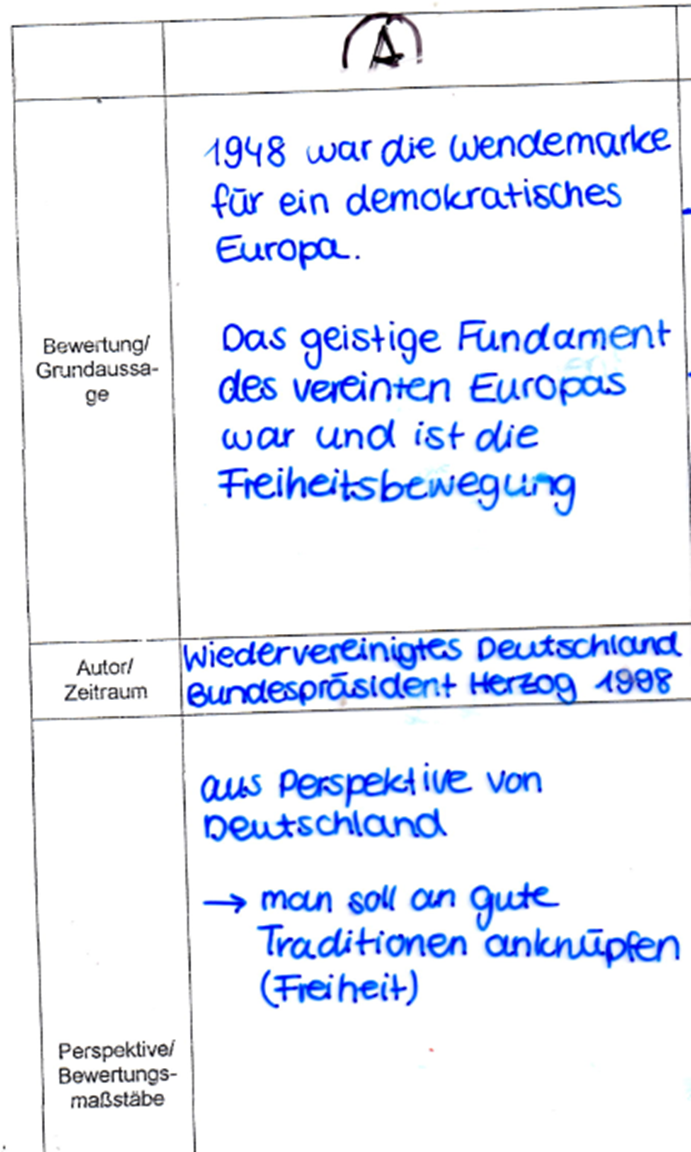 A
1948 war die Wendemarke
für ein demokratisches
Europa.
Das geistige Fundament
des vereinten Europas
war und ist die
Freiheitsbewegung
Bewertung/
Grundaussa-
ge
Wiedervereinigtes Deutschland
Bundespräsident Herzog 1998
Autor/
Zeitraum
aus Perspektive von
Deutschland
→ man soll an gute
Traditionen anknüpfen
(Freiheit)
Perspektive/
Bewertungs-
maßstäbe